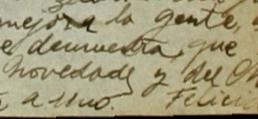 mejora la gente,
demuestra, que
novedade y del
a uno. Felici